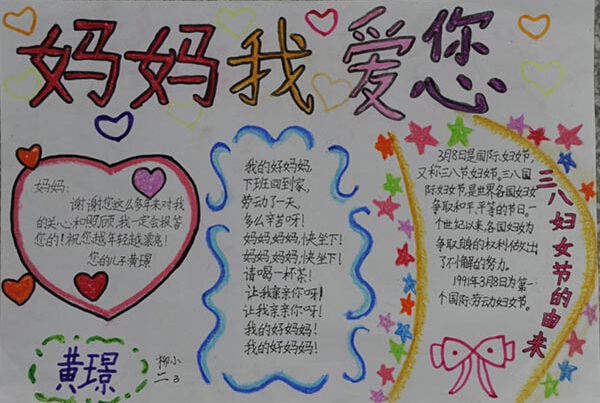 妈妈我爱您
妈妈:
谢谢您这么多年来对我
的关心和照顾,我一定会报答
您的!祝您越年轻越漂亮!
您的儿子黄璟
黄璟
柳小
二3
我的好妈妈,
下班回到家,
劳动了一天,
多么辛苦呀!
妈妈,妈妈,快坐下!
妈妈,妈妈,快坐下!
请喝一杯茶!
让我亲亲你呀!
让我亲亲你呀!
我的好妈妈!
我的好妈妈!
3月8日是国际妇女节,
又称三八节,妇女节。三八国
际妇女节,是世界各国妇女
争取和平、平等的节日。
个世纪以来,各国妇女为
争取自身的权利作出
了不懈的努力。
1991年3月8日为第一
个国际劳动妇女节。
三八妇女节的由来